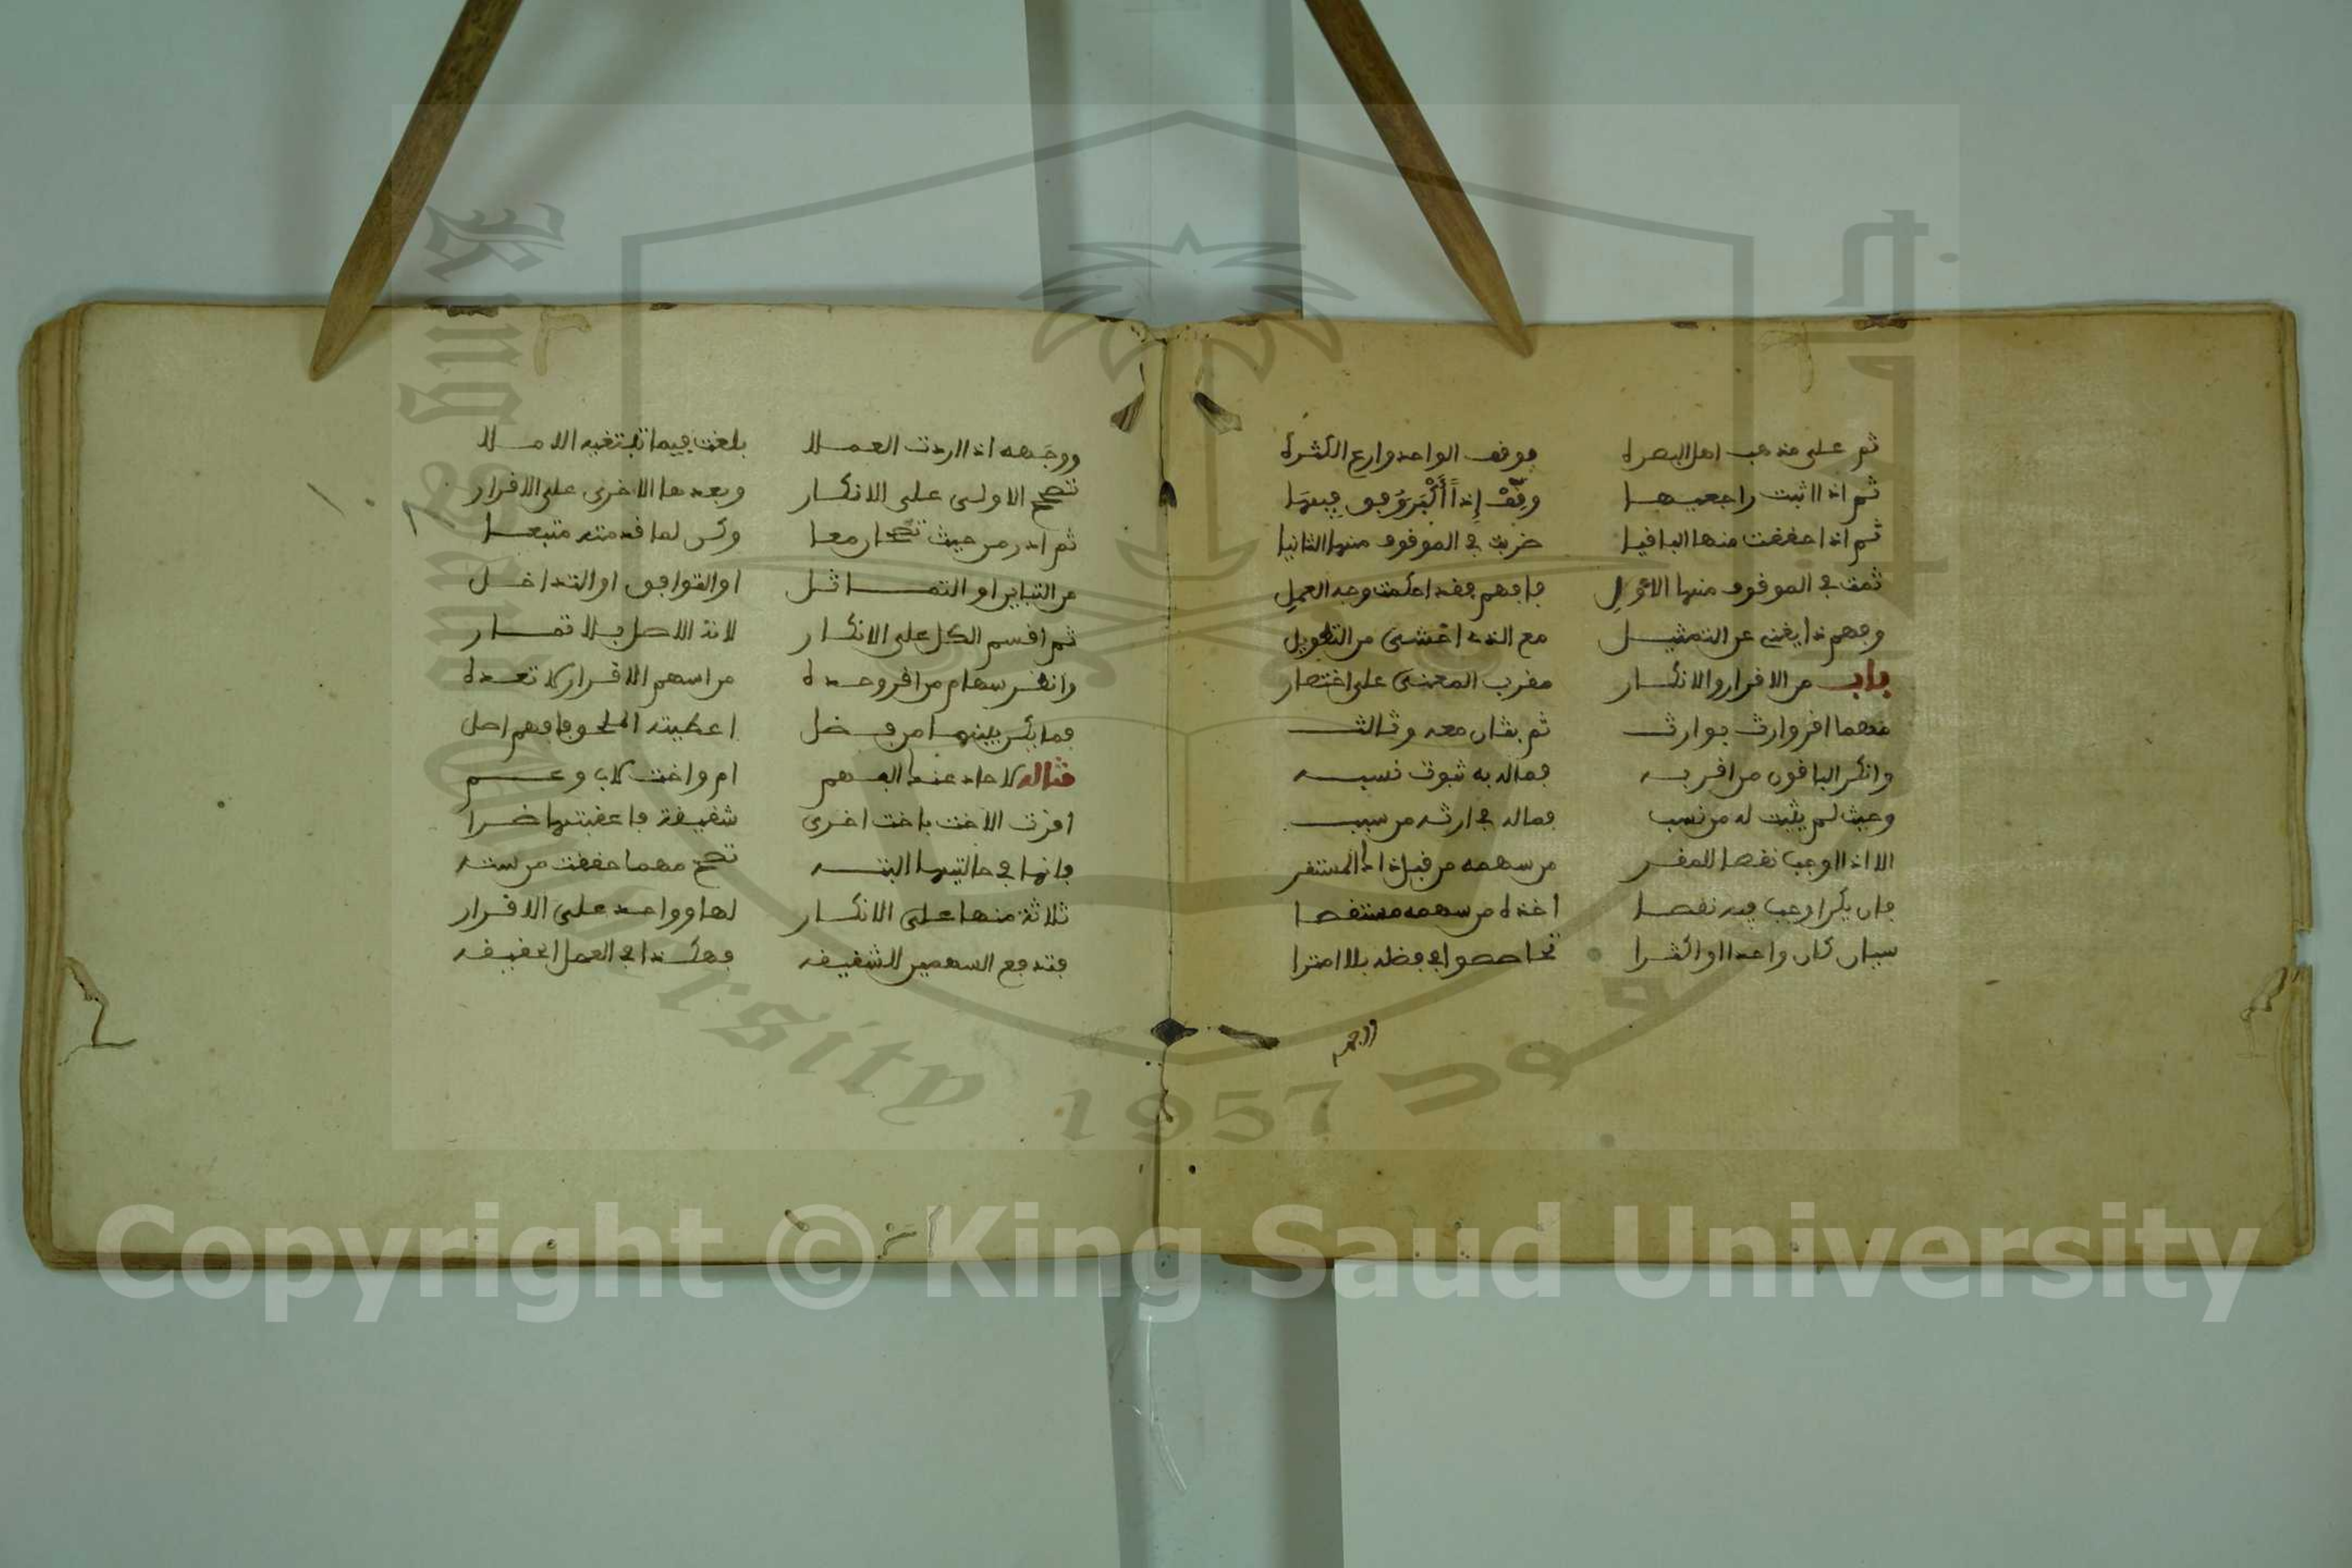 ثم على مذهب اهل البصره فوفف الواحد وارع الكثره
ثم اذا اثبت راجعيها وفق إذا أكبر وفق فيها
ثم اذا حففت منها البافيا ضربت في الموفوف منها الثانيا
ثمت في الموفوف منها الاول فافهم ففد احكمت وجه العمل
وفهم ذا يغني عن التمثيل مع الذي اخشى من التطويل
باب من الافرار والانكار مفرب المعنى على اختصار
مهما افر وارث بوارث ثم بثان معه وثالث
وانكر البافون من افر به فماله به ثبوت نسبه
وحيث لم يثبت له من نسب فماله في ارثه من سبب
الا اذا اوجب نفصا للمفر من سهمه من فبل ذاك المستفر
فان يكن اوجب فيه نفصا اخذه من سهمه مستنفصا
سيان كان واحدا او اكثرا تحاصصوا في فضله بلا امترا
ووجهه
ووجهه اذا اردت العملا بلغت فيما تبتغيه الاملا
تصحح الاولى على الانكار وبعدها الاخرى على الافرار
ثم ادر من حيث معا وكن لما فدمته متبعا
من التباين او التماثل او التوافق او التداخل
ثم افسم الكل على الانكار لانه الاصل بلا تمار
وانظر سهام من افر وحده من اسهم الافرار لا تعده
فما يكن بينهما من فضل اعطيته فافهم اصل
مثاله لاحاد عند الفهم ام واخت لاب وعم
افرت الاخت باخت اخرى شفيفة فاعفبتها ضرا
فانها في حالتيها البته تصح مهما حففت من سته
ثلاثة منها على الانكار لها وواحد على الافرار
فتدفع السهمين للشفيفه فهكذا في العمل الحفيفه
Copyright © King Saud University
1957